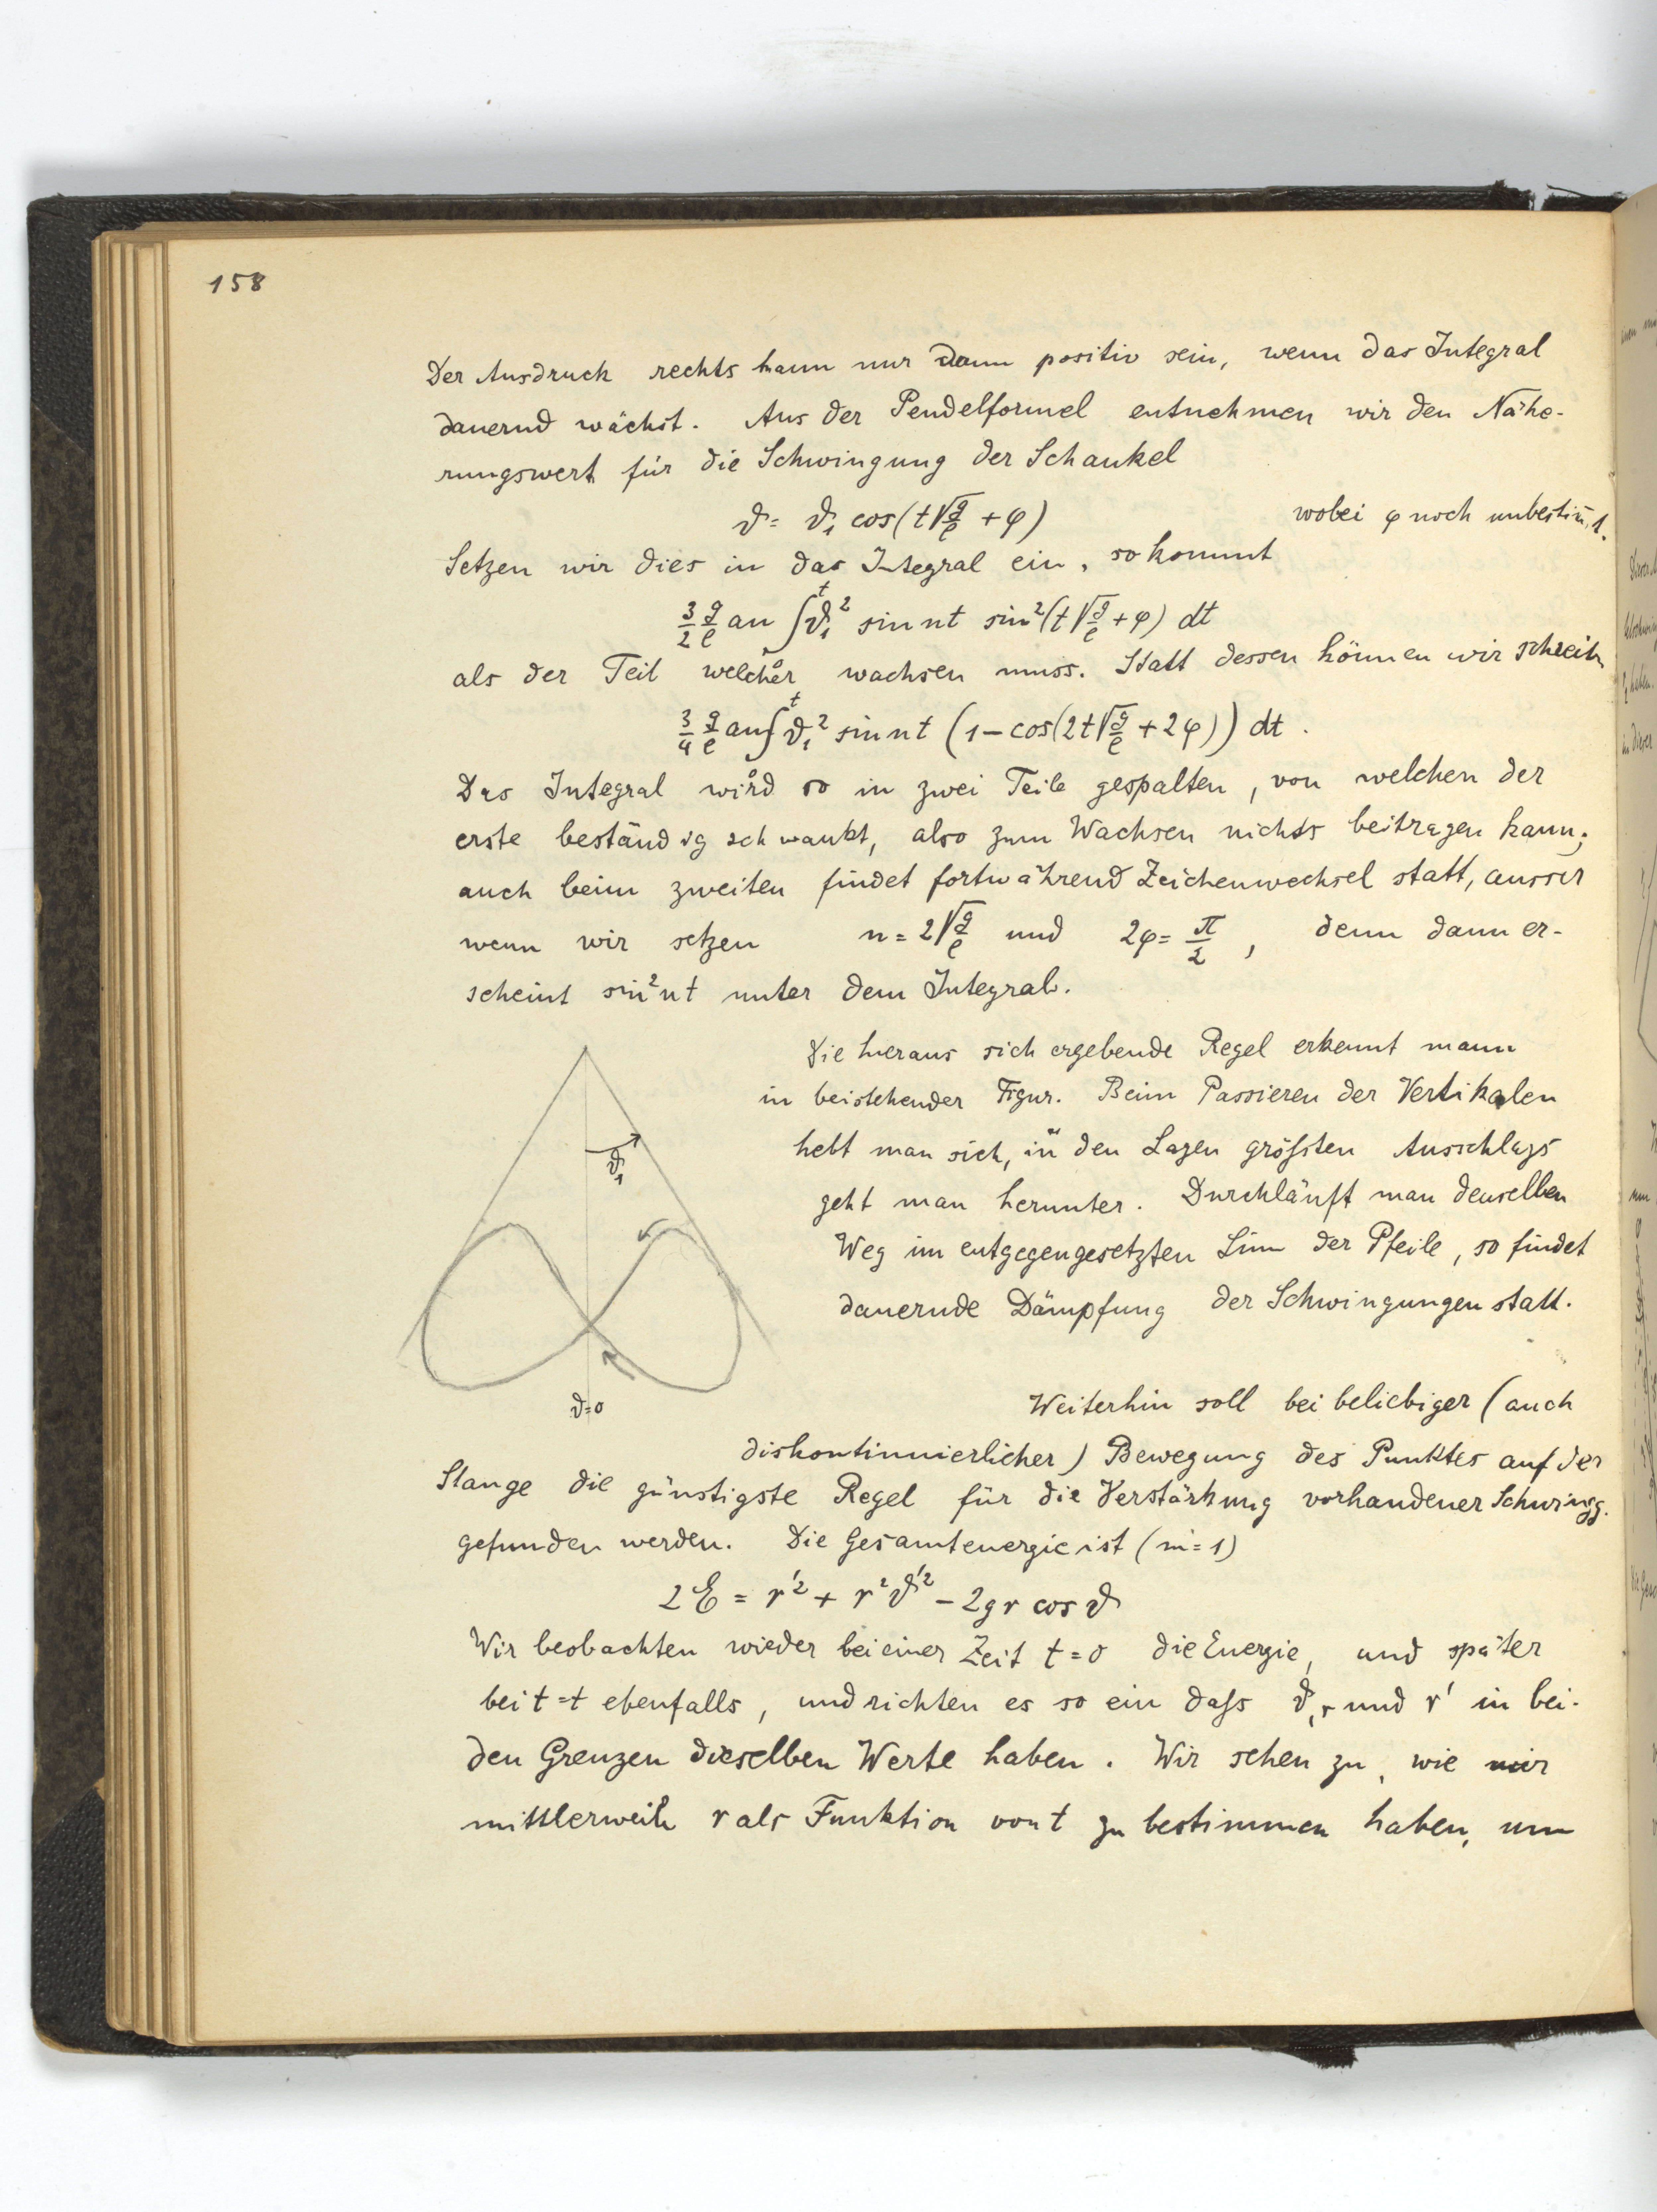 158
Der Ausdruck rechts kann nur dann positiv sein, wenn das Integral
dauernd wächst. Aus der Pendelformel entnehmen wir den Nähe-
rungswert für die Schwingung der Schaukel
ϑ = ϑ₁ cos(t√(g/ℓ) + φ) wobei φ noch unbestim̄t.
Setzen wir dies in das Integral ein, so kommt
3/2 g/ℓ an ∫₀ᵗ ϑ₁² sin nt sin²(t√(g/ℓ) + φ) dt
als der Teil welcher wachsen muss. Statt dessen können wir schreib.
3/4 g/ℓ an ∫₀ᵗ ϑ₁² sin nt (1 – cos(2t√(g/ℓ) + 2φ)) dt.
Das Integral wird so in zwei Teile gespalten, von welchen der
erste beständig schwankt, also zum Wachsen nichts beitragen kann;
auch beim zweiten findet fortwährend Zeichenwechsel statt, ausser
wenn wir setzen n = 2√(g/ℓ) und 2φ = π/2, denn dann er-
scheint sin²nt unter dem Integral.
Die hieraus sich ergebende Regel erkennt mann
in beistehender Figur. Beim Passieren der Vertikalen
hebt man sich, in den Lagen größten Ausschlags
geht man herunter. Durchläuft man denselben
Weg im entgegengesetzten Sinn der Pfeile, so findet
dauernde Dämpfung der Schwingungen statt.
ϑ₁
ϑ=0
Weiterhin soll bei beliebiger (auch
diskontinuierlicher) Bewegung des Punktes auf der
Stange die günstigste Regel für die Verstärkung vorhandener Schwingg.
gefunden werden. Die Gesamtenergie ist (m=1)
2E = r'² + r²ϑ'² – 2gr cos ϑ
Wir beobachten wieder bei einer Zeit t=0 die Energie, und später
bei t=t ebenfalls, und richten es so ein daß ϑ, r und r' in bei-
den Grenzen dieselben Werte haben. Wir sehen zu, wie wir
mittlerweile r als Funktion von t zu bestimmen haben, um